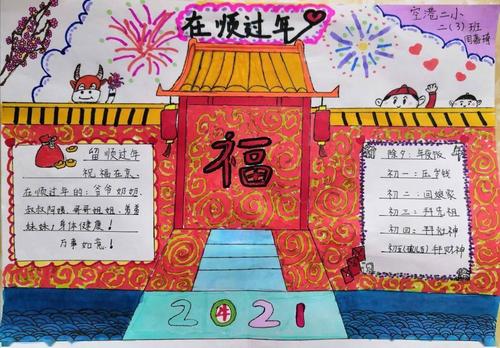 在顺过年
空港二小
二(3)班
福
留顺过年
祝福在
在顺过年的：爷爷奶奶、
叔叔阿姨、哥哥姐姐、弟弟
妹妹！身体健康！
万事如意！
除夕：年夜饭
初一：压岁钱
初二：回娘家
初三：拜先祖
初四：拜灶神
初五 拜财神
2牛21